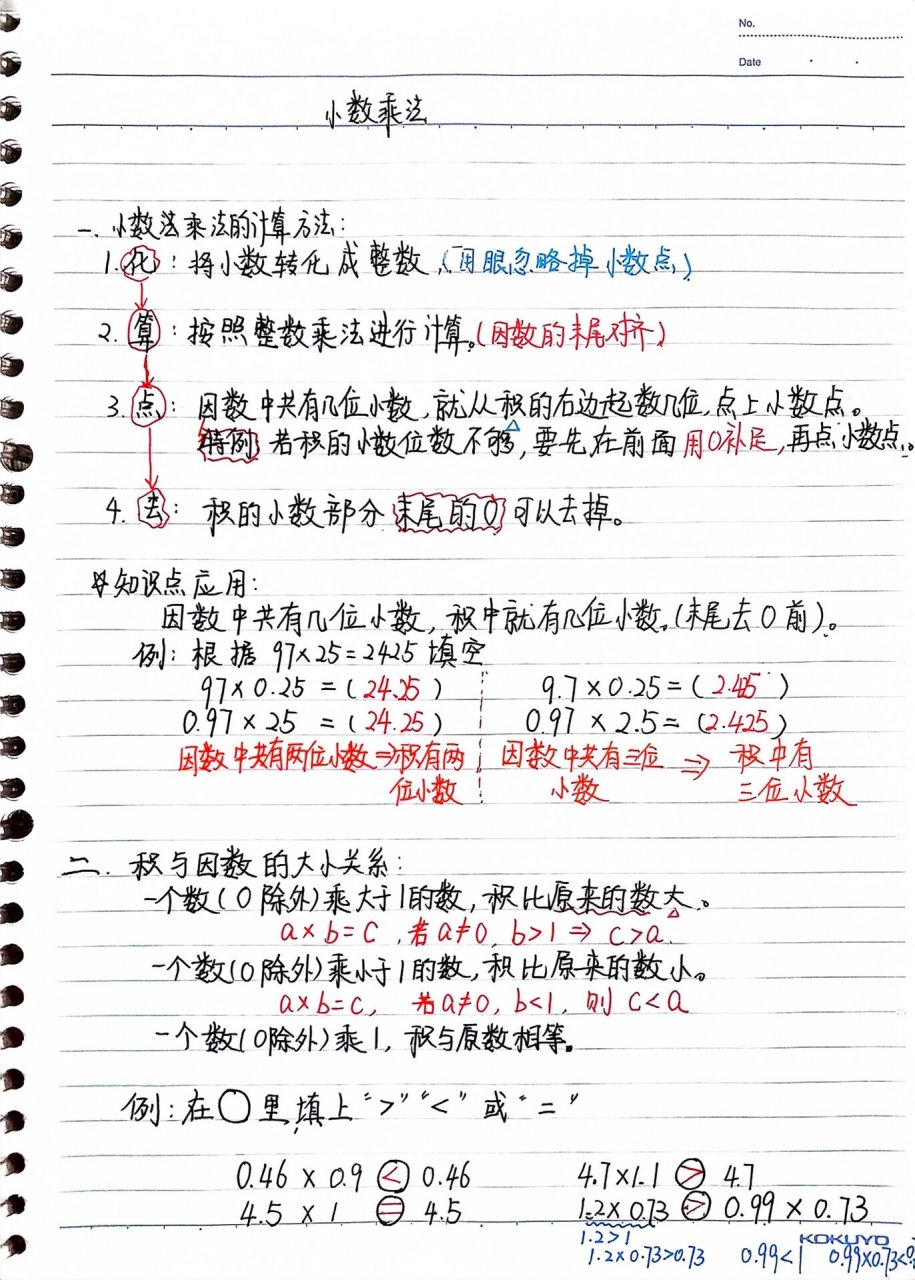 No.
Date
小数乘法
一. 小数法乘法的计算方法:
1. 化: 将小数转化成整数 (用眼忽略掉小数点)
2. 算: 按照整数乘法进行计算。(因数的末尾对齐)
3. 点: 因数中共有几位小数,就从积的右边起数几位,点上小数点。
特例 若积的小数位数不够,要先在前面用0补足,再点小数点。
4. 去: 积的小数部分末尾的0可以去掉。
知识点应用:
因数中共有几位小数,积中就有几位小数。(末尾去0前)。
例: 根据 97×25=2425 填空
97×0.25 =(24.25) 9.7×0.25=(2.425)
0.97×25 =(24.25) 0.97×2.5=(2.425)
因数中共有两位小数⇒积有两 因数中共有三位 ⇒ 积中有
位小数 小数 三位小数
二. 积与因数的大小关系:
一个数(0除外)乘大于1的数,积比原来的数大。
a×b=c,若a≠0,b>1⇒c>a.
一个数(0除外)乘小于1的数,积比原来的数小。
a×b=c, 若a≠0,b<1,则c<a
一个数(0除外)乘1,积与原数相等。
例:在○里填上">""<"或"="
0.46×0.9 < 0.46 4.7×1.1 > 4.7
4.5×1 = 4.5 1.2×0.73 > 0.99×0.73
KOKUYO
1.2>1
1.2×0.73>0.73 0.99<1 0.99×0.73<0.